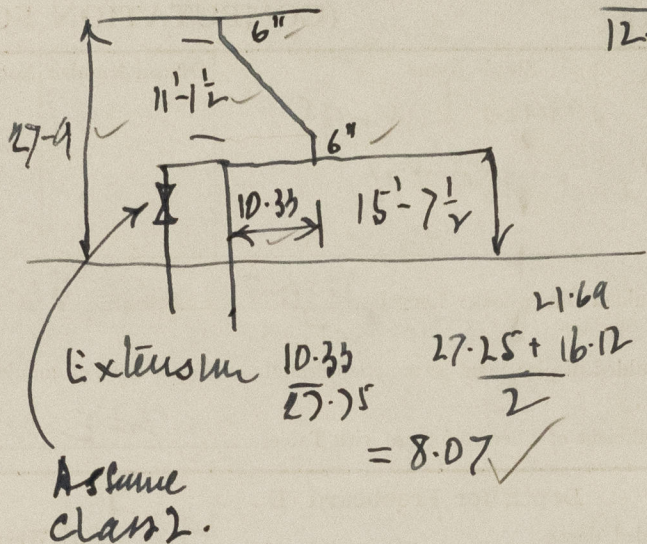 6"
12.
11'-1 1/2
27-9
6"
10.33
15'-7 1/2
21.69
Extension
10.33
27.75
27.25 + 16.12
2
= 8.07
Assume
Class 2.